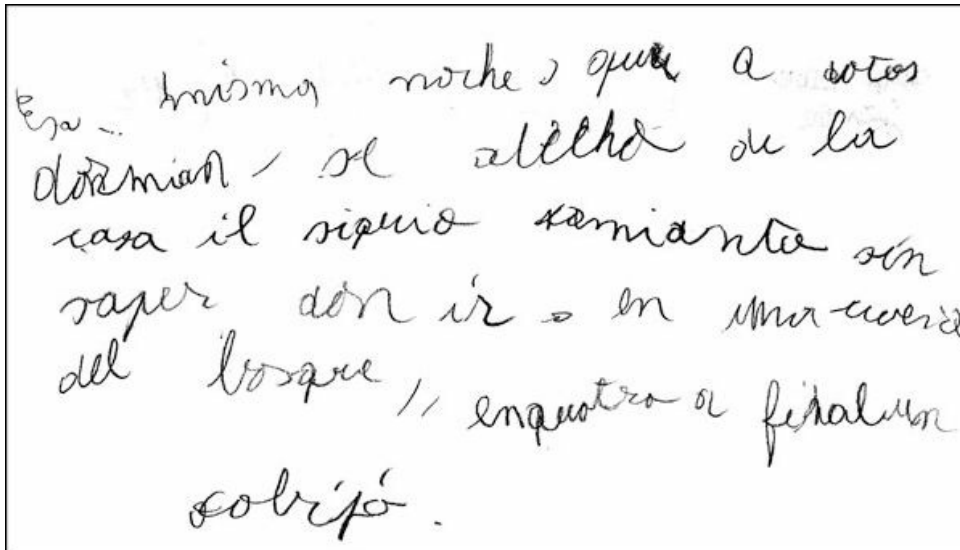 Esa misma noche, que a sotos
dormian, se alecha de la
casa il siquio samiante sin
saper don ir en una cueria
del bosque, enquotro a final un
cobijó.